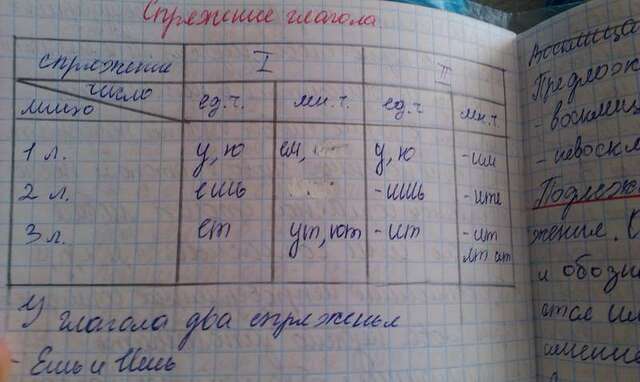 Спряжение глагола
спряжение I II
число
лицо ед.ч. мн.ч. ед.ч мн.ч.
1 л. у, ю ем, у, ю -им
2 л. ешь -ишь -ите
3 л. ет ут, ют -ит -ит
ят ат
У глагола два спряженья
- Ешь и Ишь
Предлож
- воскли
- невоскл
Подлеж
жение. С
и обозн